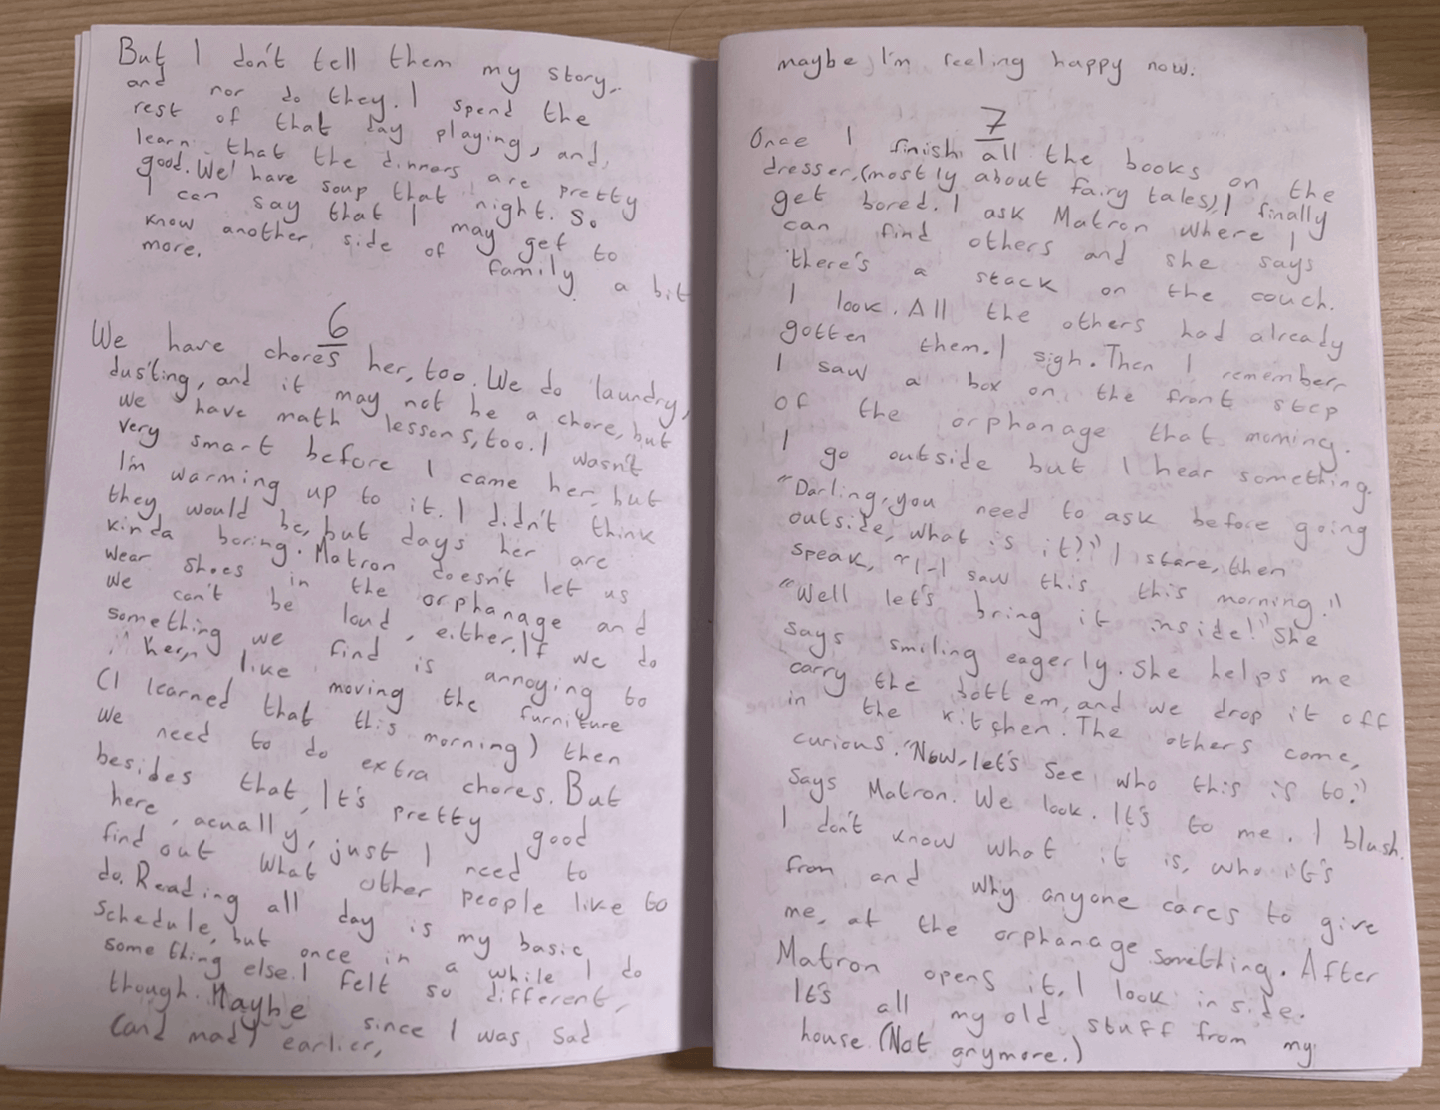 But I don't tell them my story,
and nor do they. I spend the
rest of that day playing, and,
learn that the dinners are pretty
good. We have soup that night. So
I can say that I may get to
know another side of family a bit
more.
6
We have chores her, too. We do laundry,
dusting, and it may not be a chore, but
we have math lessons, too. I wasn't
very smart before I came her, but
I'm warming up to it. I didn't think
they would be, but days her are
kinda boring. Matron doesn't let us
wear shoes in the orphanage and
we can't be loud, either. If we do
something we find is annoying to
her, like moving the furniture
(I learned that this morning) then
we need to do extra chores. But
besides that, It's pretty good
here, acually, just I need to
find out what other people like to
do. Reading all day is my basic
schedule, but once in a while I do
something else. I felt so different,
though. Maybe since I was sad
(and mad) earlier,
maybe I'm feeling happy now.
7
Once I finish all the books on the
dresser, (mostly about fairy tales), I finally
get bored. I ask Matron where I
can find others and she says
there's a stack on the couch.
I look. All the others had already
gotten them. I sigh. Then I rememberr
I saw a box on the front step
of the orphanage that morning.
I go outside but I hear something.
"Darling, you need to ask before going
outside, what is it?" I stare, then
speak, "I-I saw this this morning."
"Well let's bring it inside!" She
says smiling eagerly. She helps me
carry the bottem, and we drop it off
in the kitchen. The others come,
curious. "Now, let's see who this is to."
Says Matron. We look. It's to me. I blush.
I don't know what it is, who it's
from and why anyone cares to give
me, at the orphanage something. After
Matron opens it, I look inside.
It's all my old stuff from my
house. (Not anymore.)